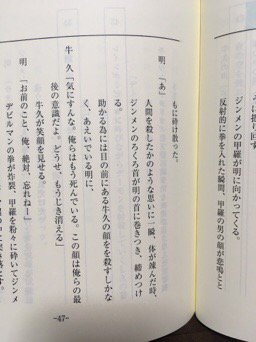 ジンメンの甲羅が明に向かってくる。
反射的に拳を入れた瞬間、甲羅の男の顔が悲鳴とと
もに砕け散った。
明「あ」
人間を殺したかのような思いに一瞬、体が竦んだ時、
ジンメンのろくろ首が明の首に巻きつき、締めつけ
る。
助かる為には目の前にある牛久の顔をを殺すしかな
く、あえいでいる明に、
牛久「気にすんな。俺らはもう死んでいる。この顔は俺らの最
後の意識だよ。どうせ、もうじき消える」
牛久が笑顔を見せる。
明「お前のこと、俺、絶対、忘れねー」
デビルマンの拳が炸裂、甲羅を粉々に砕いてジンメ
-47-